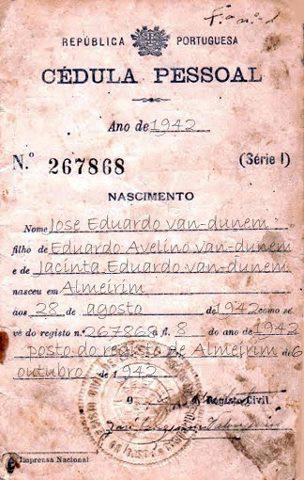 REPÚBLICA PORTUGUESA
CÉDULA PESSOAL
Ano de 1942
N.º 267868 (Série I)
NASCIMENTO
Nome Jose Eduardo van-dunem
filho de Eduardo Avelino van-dunem
e de Jacinta Eduardo van-dunem
nasceu em Almeirim
aos 28 de agosto de 1942 como se
vê do registo n.º 267868 a fl. 8 do ano de 1942
posto do registo de Almeirim de 6
outubro de 1942
O do Registo Civil,
Imprensa Nacional